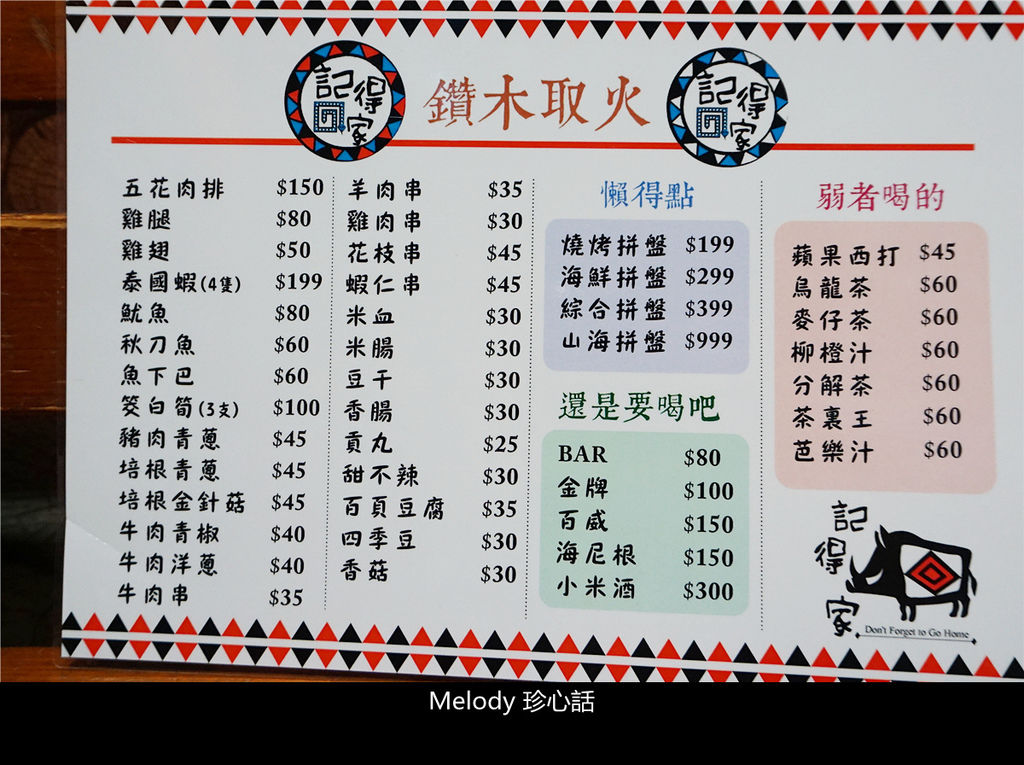 記得回家
鑽木取火
記得回家
五花肉排 $150
雞腿 $80
雞翅 $50
泰國蝦(4隻) $199
魷魚 $80
秋刀魚 $60
魚下巴 $60
筊白筍(3支) $100
豬肉青蔥 $45
培根青蔥 $45
培根金針菇 $45
牛肉青椒 $40
牛肉洋蔥 $40
牛肉串 $35
羊肉串 $35
雞肉串 $30
花枝串 $45
蝦仁串 $45
米血 $30
米腸 $30
豆干 $30
香腸 $30
貢丸 $25
甜不辣 $30
百頁豆腐 $35
四季豆 $30
香菇 $30
懶得點
燒烤拼盤 $199
海鮮拼盤 $299
綜合拼盤 $399
山海拼盤 $999
還是要喝吧
BAR $80
金牌 $100
百威 $150
海尼根 $150
小米酒 $300
弱者喝的
蘋果西打 $45
烏龍茶 $60
麥仔茶 $60
柳橙汁 $60
分解茶 $60
茶裏王 $60
芭樂汁 $60
記得家
Don't Forget to Go Home
Melody 珍心話